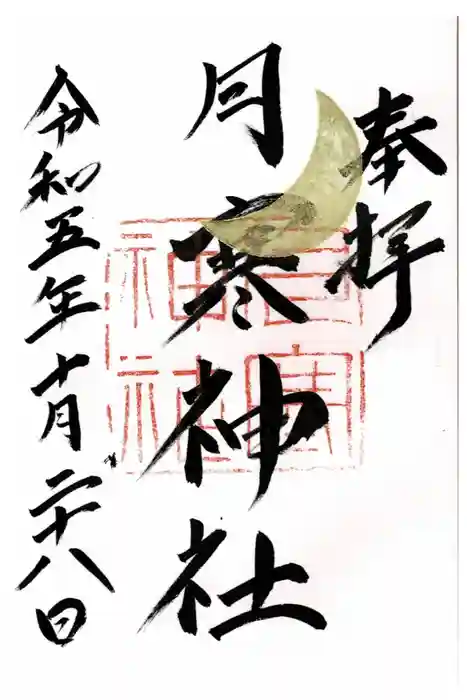 奉拝
月寒神社
令和五年十月二十八日
月寒
神社